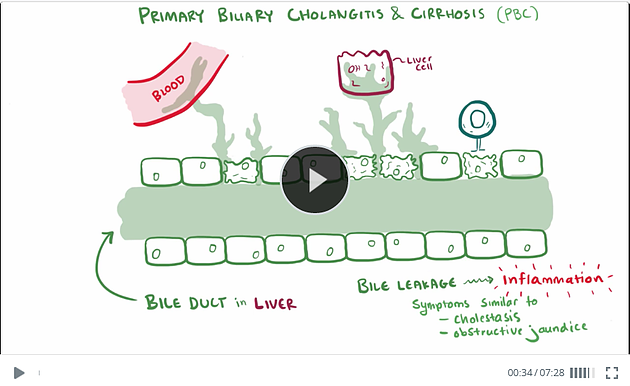 PRIMARY BILIARY CHOLANGITIS & CIRRHOSIS (PBC)
BLOOD
LIVER CELL
BILE DUCT in LIVER
BILE LEAKAGE → Inflammation
Symptoms Similar to
– cholestasis
– obstructive jaundice
00:34 / 07:28